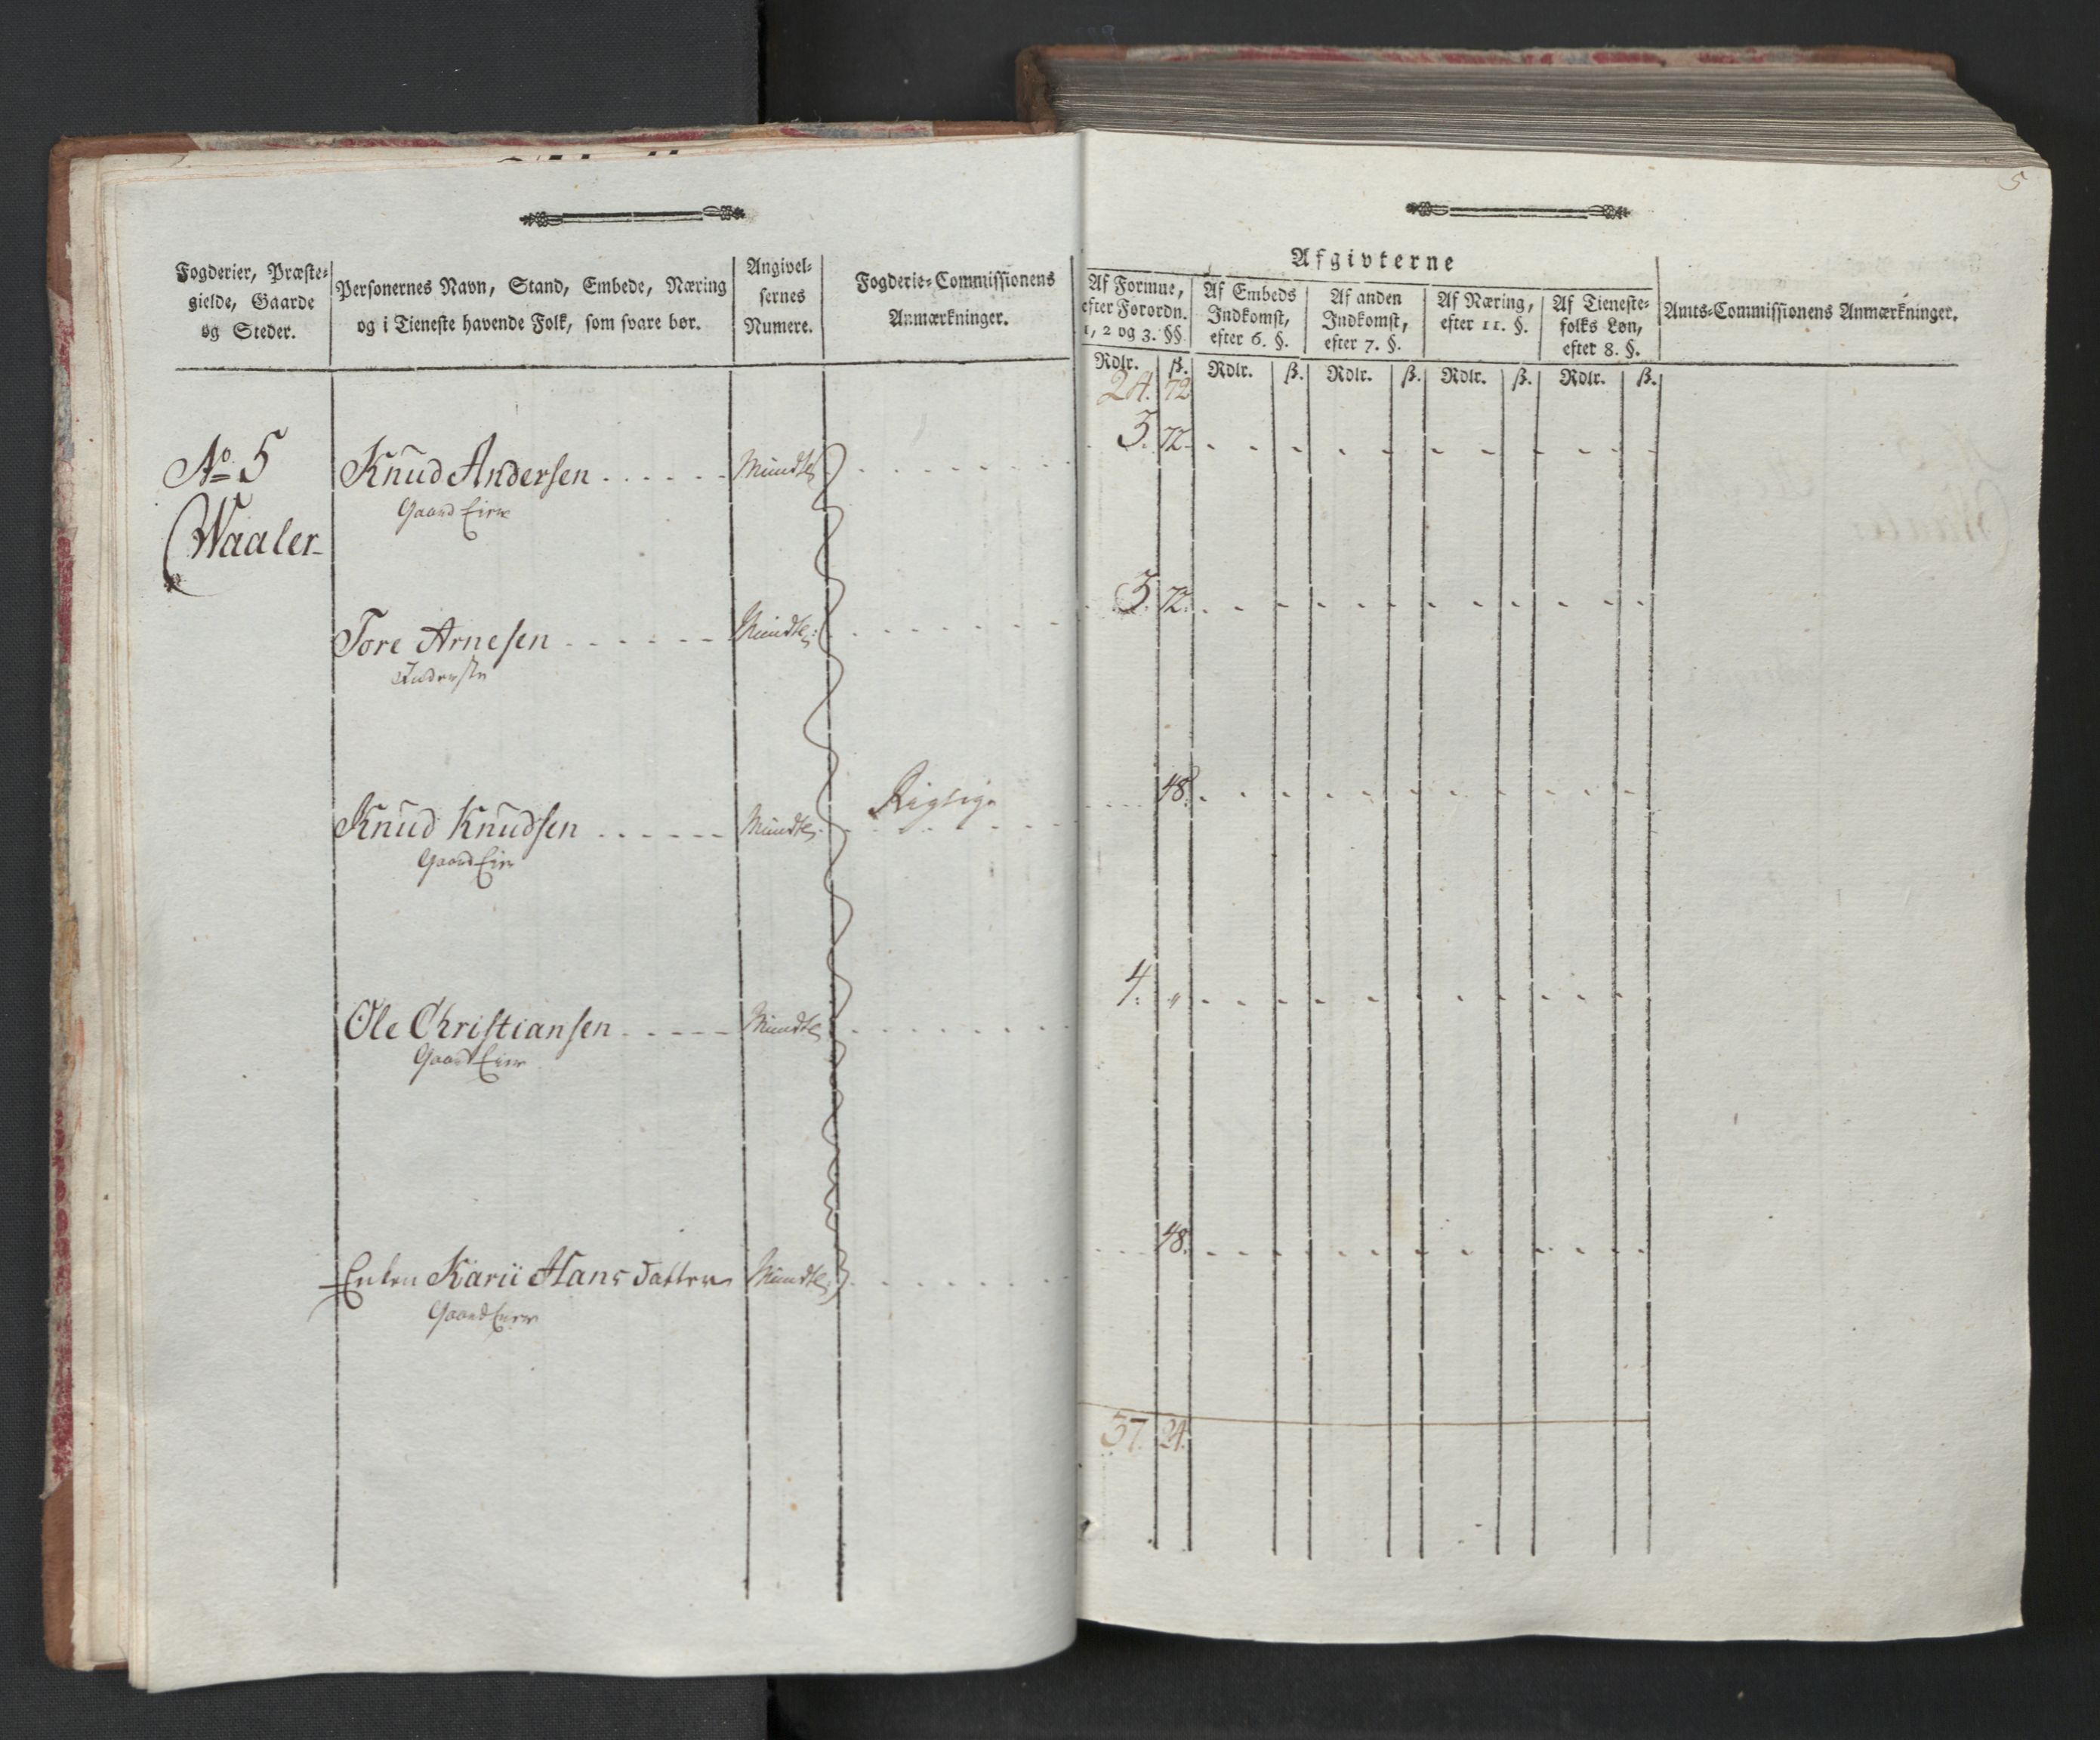 5
Fogderier, Præste-
gielde, Gaarde
og Steder.
Personernes Navn, Stand, Embede, Næring
og i Tieneste havende Folk, som svare bør.
Angivel-
sernes
Numere.
Fogderie-Commissionens
Anmærkninger.
Afgivterne
Af Formue,
efter Forordn.
1, 2 og 3. §§.
Af Embeds
Indkomst,
efter 6. §.
Af anden
Indkomst,
efter 7. §.
Af Næring,
efter 11. §.
Af Tieneste-
folks Løn,
efter 8. §.
Amts-Commissionens Anmærkninger.
Rdlr. ß. Rdlr. ß. Rdlr. ß. Rdlr. ß. Rdlr. ß.
24. 72
No 5 Knud Andersen Mundtl: 3. 72.
Gaard Eier
Waaler
Tore Arnesen Mundtl: 3. 72.
Inderste
Knud Knudsen Mundtl: Rigtig 48.
Gaard Eier
Ole Christiansen Mundtl: 4. "
Gaard Eier
Enken Karii Hans Datter Mundtl: 48.
Gaard Eier
37. 24.